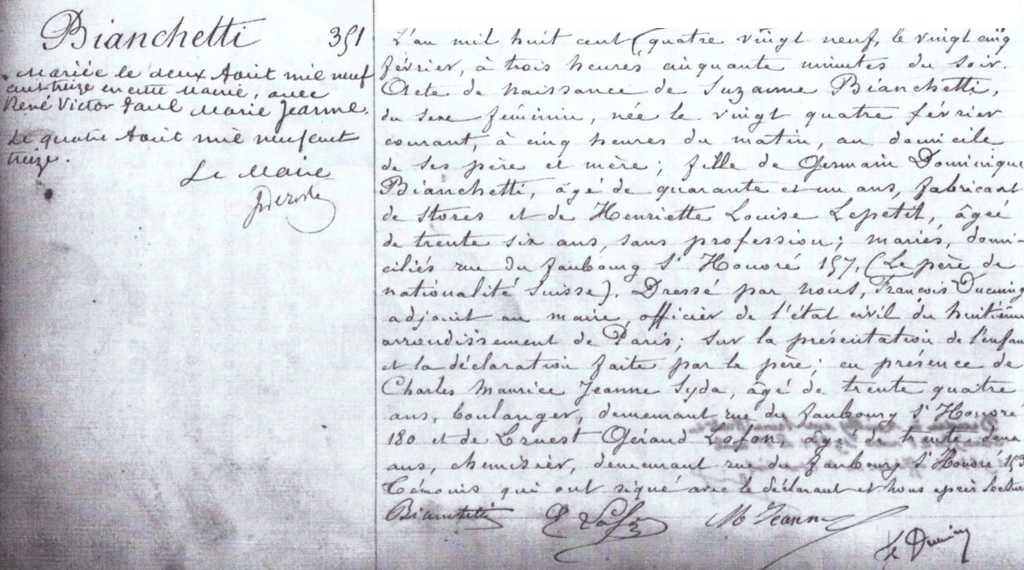 Bianchetti 351
Mariée le deux Août mil neuf
cent treize en cette Mairie, avec
René Victor Paul Marie Jeanne.
Le quatre Août mil neuf cent
treize.
Le Maire
L'an mil huit cent quatre vingt neuf, le vingt cinq
février, à trois heures cinquante minutes du soir.
Acte de naissance de Suzanne Bianchetti,
du sexe féminin, née le vingt quatre février
courant, à cinq heures du matin, au domicile
de ses père et mère; fille de Germain Dominique
Bianchetti, âgé de quarante et un ans, fabricant
de stores et de Henriette Louise Lepetit, âgée
de trente six ans, sans profession; mariés, domi-
ciliés rue du faubourg St Honoré 157, (Le père de
nationalité Suisse). Dressé par nous, François Ducuing
adjoint au maire, officier de l'état civil du huitième
arrondissement de Paris; sur la présentation de l'enfant
et la déclaration faite par le père; en présence de
Charles Maurice Jeanne âgé de trente quatre
ans, boulanger, demeurant rue du faubourg St Honoré
180 et de Ernest Géraud Lafon, âgé de trente deux
ans, chemisier, demeurant rue du faubourg St Honoré 153
Témoins qui ont signé avec le déclarant et nous après lecture
Bianchetti Lafon M Jeanne
Fs Ducuing